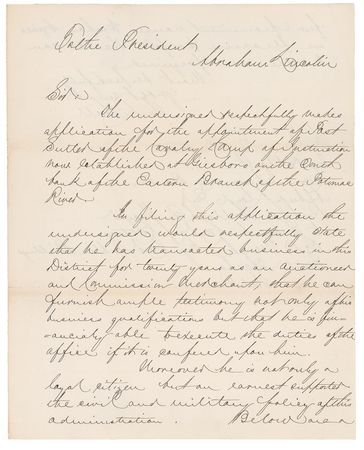 To the President
Abraham Lincoln
Sir
The undersigned respectfully makes
application for the appointment of Post
Sutler of the Cavalry Camp of Instruction
now established at Giesboro on the South
bank of the Eastern Branch of the Potomac
River.
In filing this application the
undersigned would respectfully state
that he has transacted business in this
District for twenty years as an Auctioneer
and Commission Merchant, that he can
furnish ample testimony not only of his
business qualifications but that he is fin-
ancialy able to execute the duties of the
office if it is confered upon him.
Moreover he is not only a
loyal citizen but an earnest supporter
the civil and military policy of the
administration. Below are a